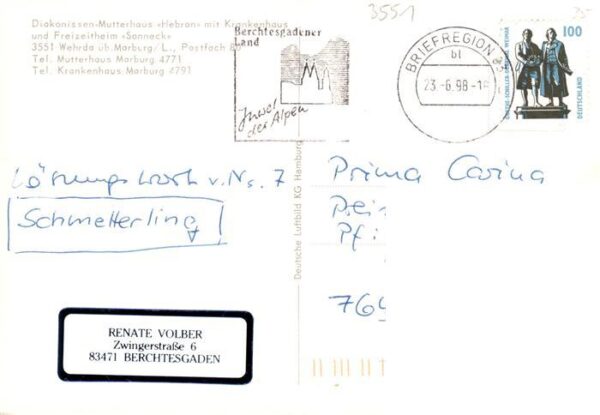 Diakonissen-Mutterhaus »Hebron« mit Krankenhaus
und Freizeitheim »Sonneck«
3551 Wehrda üb. Marburg/L., Postfach
Tel. Mutterhaus Marburg 4771
Tel. Krankenhaus Marburg 4791
3551
Berchtesgadener
Land
Juwel
der Alpen
BRIEFREGION 83
bl
23.-6.98-18
100
GOETHE-SCHILLER-DENKMAL WEIMAR
DEUTSCHLAND
Lösungswort v. Nr. 7
Schmetterling
Deutsche Luftbild KG Hamburg
Prima Carina
Pf:
764
RENATE VOLBER
Zwingerstraße 6
83471 BERCHTESGADEN